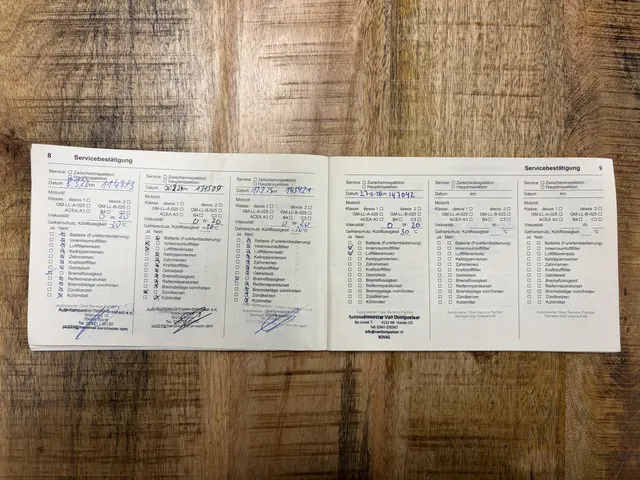 8 Servicebestätigung
Service: Zwischeninspektion
Hauptinspektion
Datum: km 114373
Motoröl
Klasse: dexos 1 dexos 2
GM-LL-A-025 GM-LL-B-025
ACEA A3 B4 C3
Viskosität 0 W 20
Gefrierschutz, Kühlflüssigkeit -30°C
Ja Nein
Batterie (Funkfernbedienung)
Innenraumluftfilter
Luftfiltereinsatz
Keilrippenriemen
Zahnriemen
Kraftstofffilter
Getriebeöl
Bremsflüssigkeit
Reifenreparaturset
Bremsbeläge vorn/hinten
Zündkerzen
Kühlmittel
Autorisierter Opel Service Partner
Service: Zwischeninspektion
Hauptinspektion
Datum: km 131507
Motoröl
Klasse: dexos 1 dexos 2
GM-LL-A-025 GM-LL-B-025
ACEA A3 B4 C3
Viskosität 0 W 20
Gefrierschutz, Kühlflüssigkeit -30°C
Ja Nein
Batterie (Funkfernbedienung)
Innenraumluftfilter
Luftfiltereinsatz
Keilrippenriemen
Zahnriemen
Kraftstofffilter
Getriebeöl
Bremsflüssigkeit
Reifenreparaturset
Bremsbeläge vorn/hinten
Zündkerzen
Kühlmittel
Service: Zwischeninspektion
Hauptinspektion
Datum: km
Motoröl
Klasse: dexos 1 dexos 2
GM-LL-A-025 GM-LL-B-025
ACEA A3 B4 C3
Viskosität 0 W 20
Gefrierschutz, Kühlflüssigkeit -30°C
Ja Nein
Batterie (Funkfernbedienung)
Innenraumluftfilter
Luftfiltereinsatz
Keilrippenriemen
Zahnriemen
Kraftstofffilter
Getriebeöl
Bremsflüssigkeit
Reifenreparaturset
Bremsbeläge vorn/hinten
Zündkerzen
Kühlmittel
Servicebestätigung 9
Service: Zwischeninspektion
Hauptinspektion
Datum: km 147042
Motoröl
Klasse: dexos 1 dexos 2
GM-LL-A-025 GM-LL-B-025
ACEA A3 B4 C3
Viskosität 0 W 20
Gefrierschutz, Kühlflüssigkeit 30 °C
Ja Nein
Batterie (Funkfernbedienung)
Innenraumluftfilter
Luftfiltereinsatz
Keilrippenriemen
Zahnriemen
Kraftstofffilter
Getriebeöl
Bremsflüssigkeit
Reifenreparaturset
Bremsbeläge vorn/hinten
Zündkerzen
Kühlmittel
Autorisierter Opel Service Partner
Autovakmeester Van Dompselaar
BOVAG
Service: Zwischeninspektion
Hauptinspektion
Datum: km
Motoröl
Klasse: dexos 1 dexos 2
GM-LL-A-025 GM-LL-B-025
ACEA A3 B4 C3
Viskosität W
Gefrierschutz, Kühlflüssigkeit °C
Ja Nein
Batterie (Funkfernbedienung)
Innenraumluftfilter
Luftfiltereinsatz
Keilrippenriemen
Zahnriemen
Kraftstofffilter
Getriebeöl
Bremsflüssigkeit
Reifenreparaturset
Bremsbeläge vorn/hinten
Zündkerzen
Kühlmittel
Autorisierter Opel Service Partner
Stempel und Unterschrift
Service: Zwischeninspektion
Hauptinspektion
Datum: km
Motoröl
Klasse: dexos 1 dexos 2
GM-LL-A-025 GM-LL-B-025
ACEA A3 B4 C3
Viskosität W
Gefrierschutz, Kühlflüssigkeit °C
Ja Nein
Batterie (Funkfernbedienung)
Innenraumluftfilter
Luftfiltereinsatz
Keilrippenriemen
Zahnriemen
Kraftstofffilter
Getriebeöl
Bremsflüssigkeit
Reifenreparaturset
Bremsbeläge vorn/hinten
Zündkerzen
Kühlmittel
Autorisierter Opel Service Partner
Stempel und Unterschrift